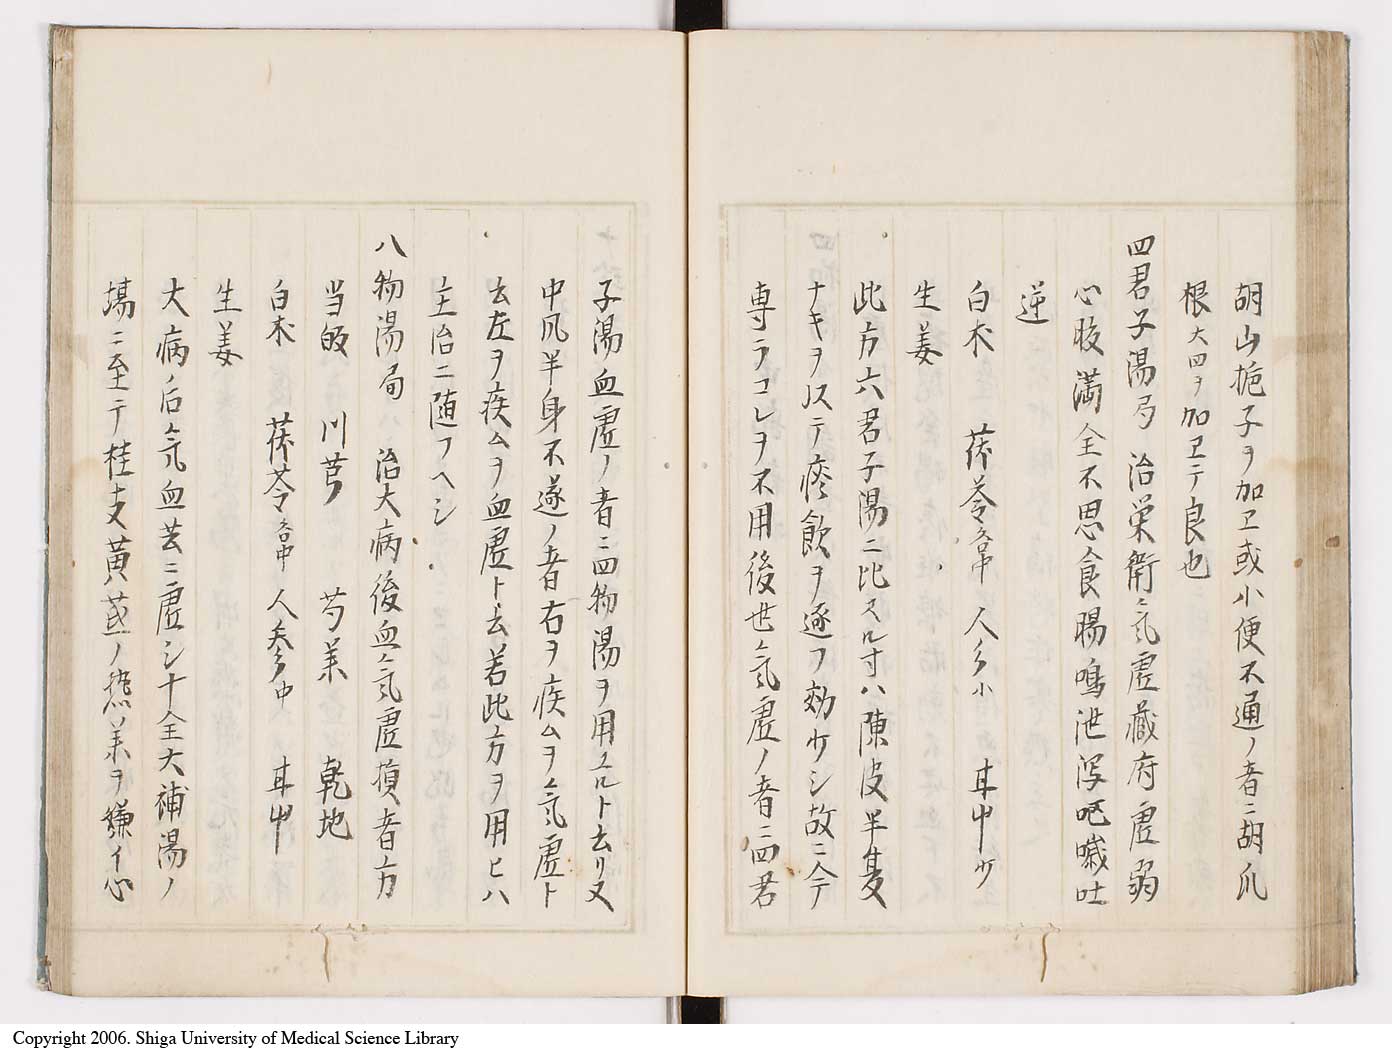 胡山梔子ヲ加ヱ或小便不通ノ者ニ胡瓜
根大四ヲ加ヱテ良也
四君子湯局 治栄衛気虚蔵府虚弱
心腹満全不思食腸鳴泄泻呕噦吐
逆
白朮 茯苓各中 人参小 甘中少
生姜
此方六君子湯ニ比スル寸ハ陳皮半夏
ナキヲ以テ痰飲ヲ逐フ効少シ故ニ今
専ラコレヲ不用後世気虚ノ者ニ四君
子湯血虚ノ者ニ四物湯ヲ用ユルト云リ又
中風半身不遂ノ者右ヲ疾ムヲ気虚ト
云左ヲ疾ムヲ血虚ト云若此方ヲ用ヒハ
主治ニ随フヘシ
八物湯局 治大病後血気虚損者方
当皈 川芎 芍薬 乾地
白朮 茯苓各中 人参中 甘中
生姜
大病后気血芸ニ虚シ十全大補湯ノ
場ニ至テ桂支黄芪ノ薬ヲ嫌イ心